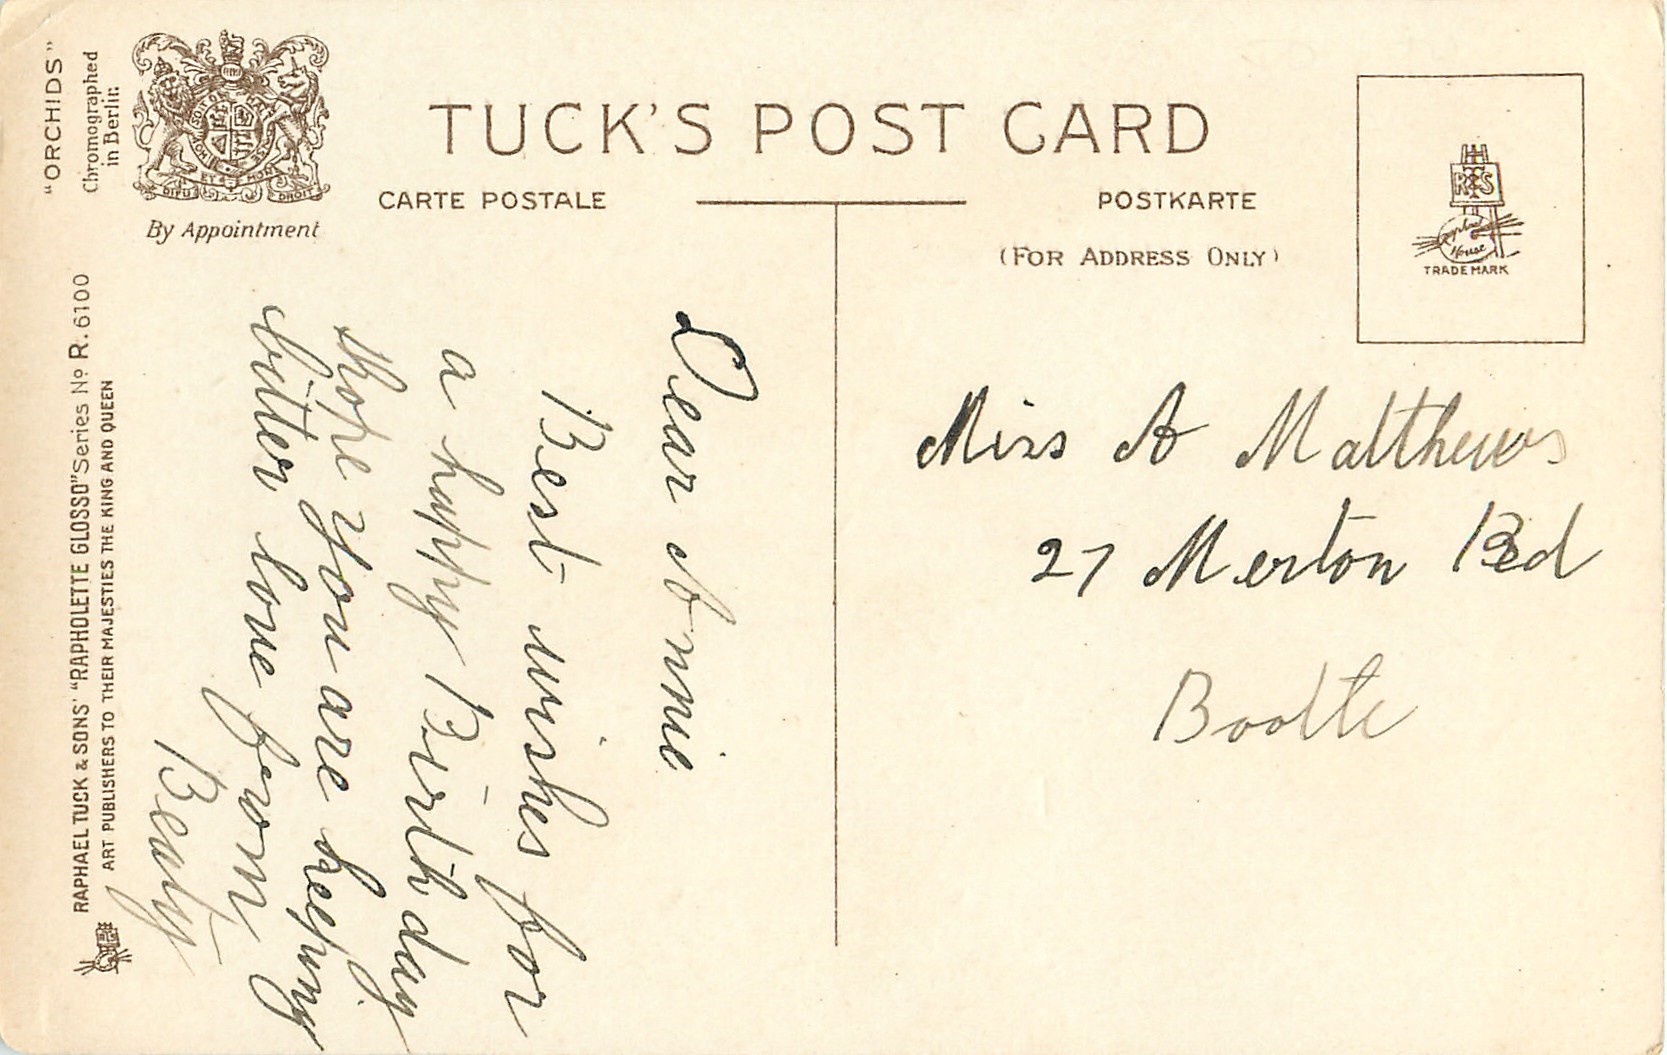 "ORCHIDS"
Chromographed
in Berlin
By Appointment
TUCK'S POST CARD
CARTE POSTALE
POSTKARTE
(FOR ADDRESS ONLY)
R T S
Raphael
House
TRADE MARK
DIEU ET MON DROIT
RAPHAEL TUCK & SONS' "RAPHOLETTE GLOSSO" Series No R. 6100
ART PUBLISHERS TO THEIR MAJESTIES THE KING AND QUEEN
Dear Annie
Best wishes for
a happy Birthday
Hope you are keeping
bitter love from
Beaty
Miss A Matthews
27 Merton Rd
Bootle